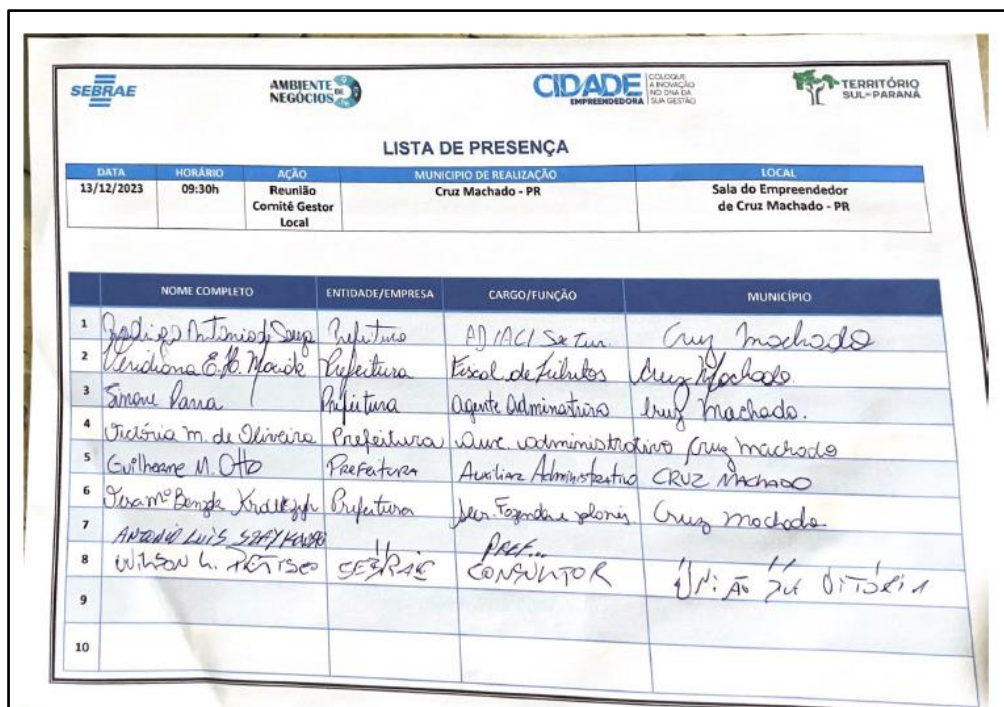 SEBRAE
AMBIENTE DE NEGÓCIOS
CIDADE EMPREENDEDORA
COLOQUE A INOVAÇÃO NO DNA DA SUA GESTÃO
TERRITÓRIO SUL-PARANÁ
LISTA DE PRESENÇA
DATA HORÁRIO AÇÃO MUNICIPIO DE REALIZAÇÃO LOCAL
13/12/2023 09:30h Reunião Cruz Machado - PR Sala do Empreendedor
Comitê Gestor de Cruz Machado - PR
Local
NOME COMPLETO ENTIDADE/EMPRESA CARGO/FUNÇÃO MUNICÍPIO
1 Rodrigo Antonio de Souza Prefeitura Cruz Machado
2 Veridiana Prefeitura Fiscal de Tributos Cruz Machado.
3 Simone Parra Prefeitura agente Adminatrivo Cruz Machado.
4 Victória M. de Oliveira Prefeitura aux. administrativo Cruz Machado
5 Guilherme M. Otto PREFEITURA Auxiliar Administrativo CRUZ MACHADO
6 Prefeitura Cruz Machado
7 ANTONIO LUIS PREF... "
8 Wilson SEBRAE CONSULTOR UNIÃO DA VITÓRIA
9
10